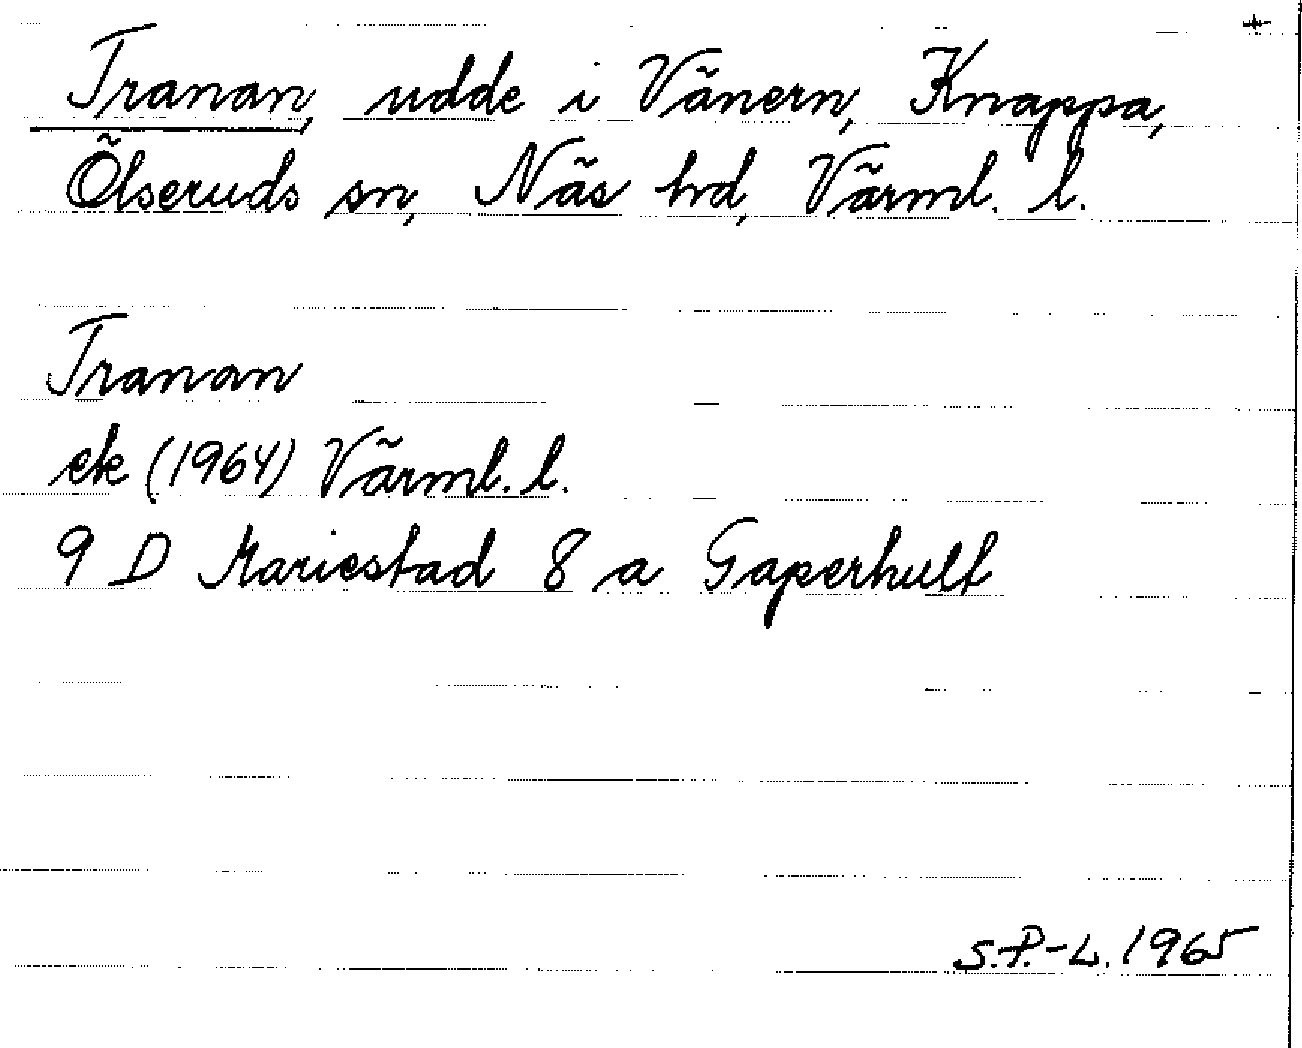 Tranan, udde i Vänern, Knappa,
Ölseruds sn, Näs hd, Värml. l.
Tranan
ek (1964) Värml. l.
9 D Mariestad 8 a Gaperhult
S.P.-L. 1965